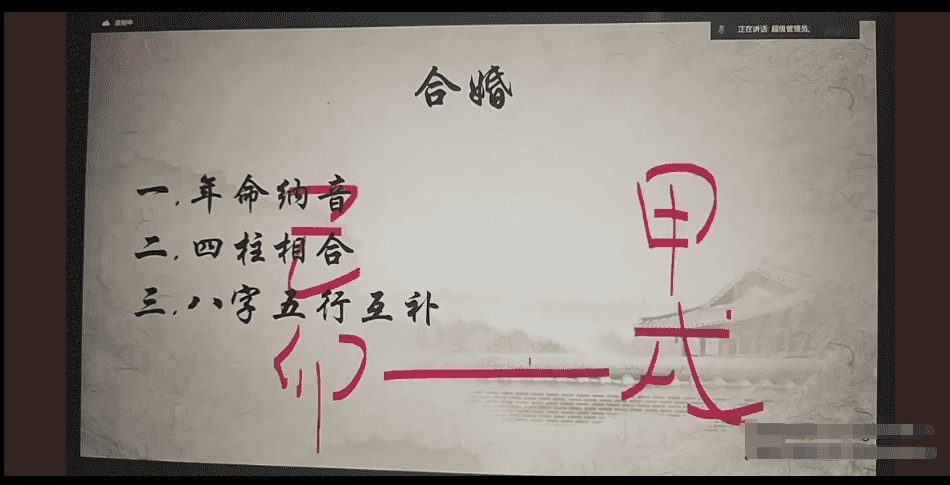 录制中
正在讲话: 超级管理员;
合婚
一.年命纳音
二.四柱相合
三.八字五行互补
己 甲
卯 戌